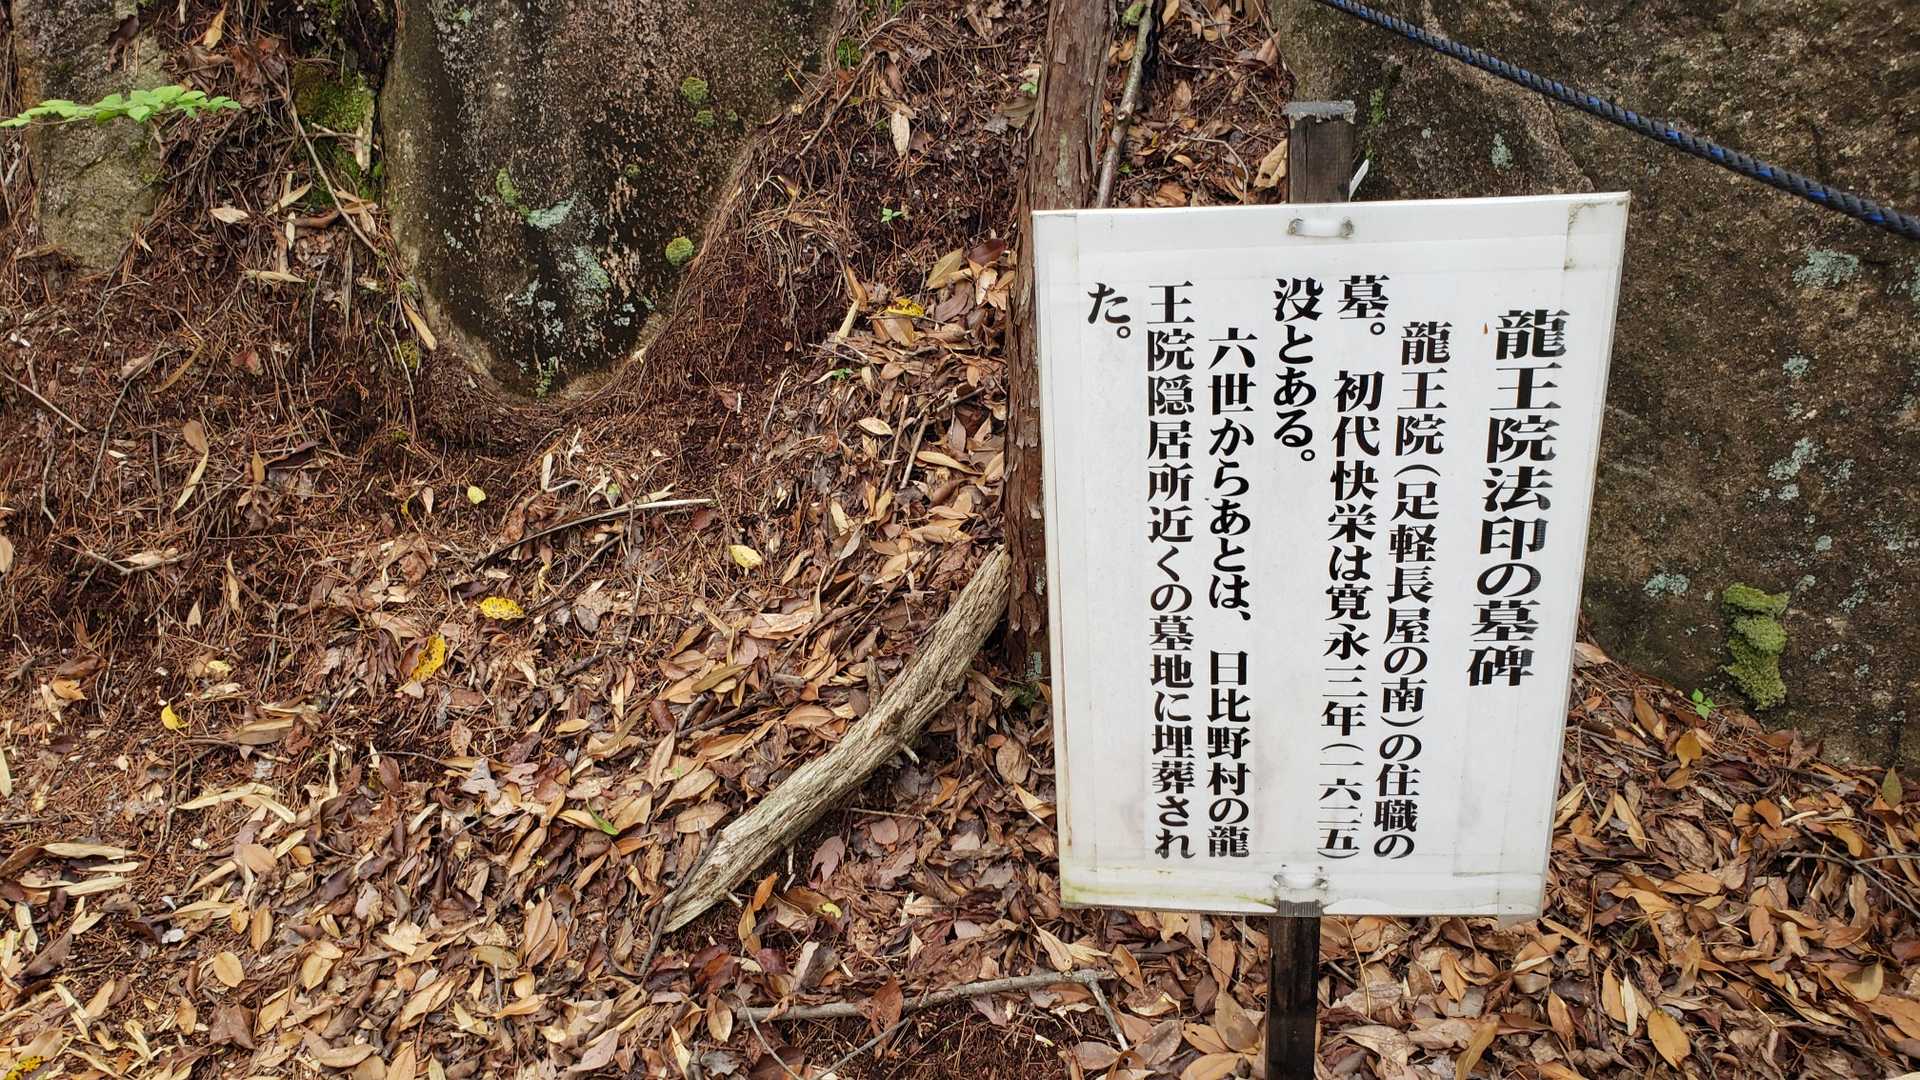 龍王院法印の墓碑
龍王院（足軽長屋の南）の住職の
墓。初代快栄は寛永三年（一六二五）
没とある。
六世からあとは、日比野村の龍
王院隠居所近くの墓地に埋葬され
た。